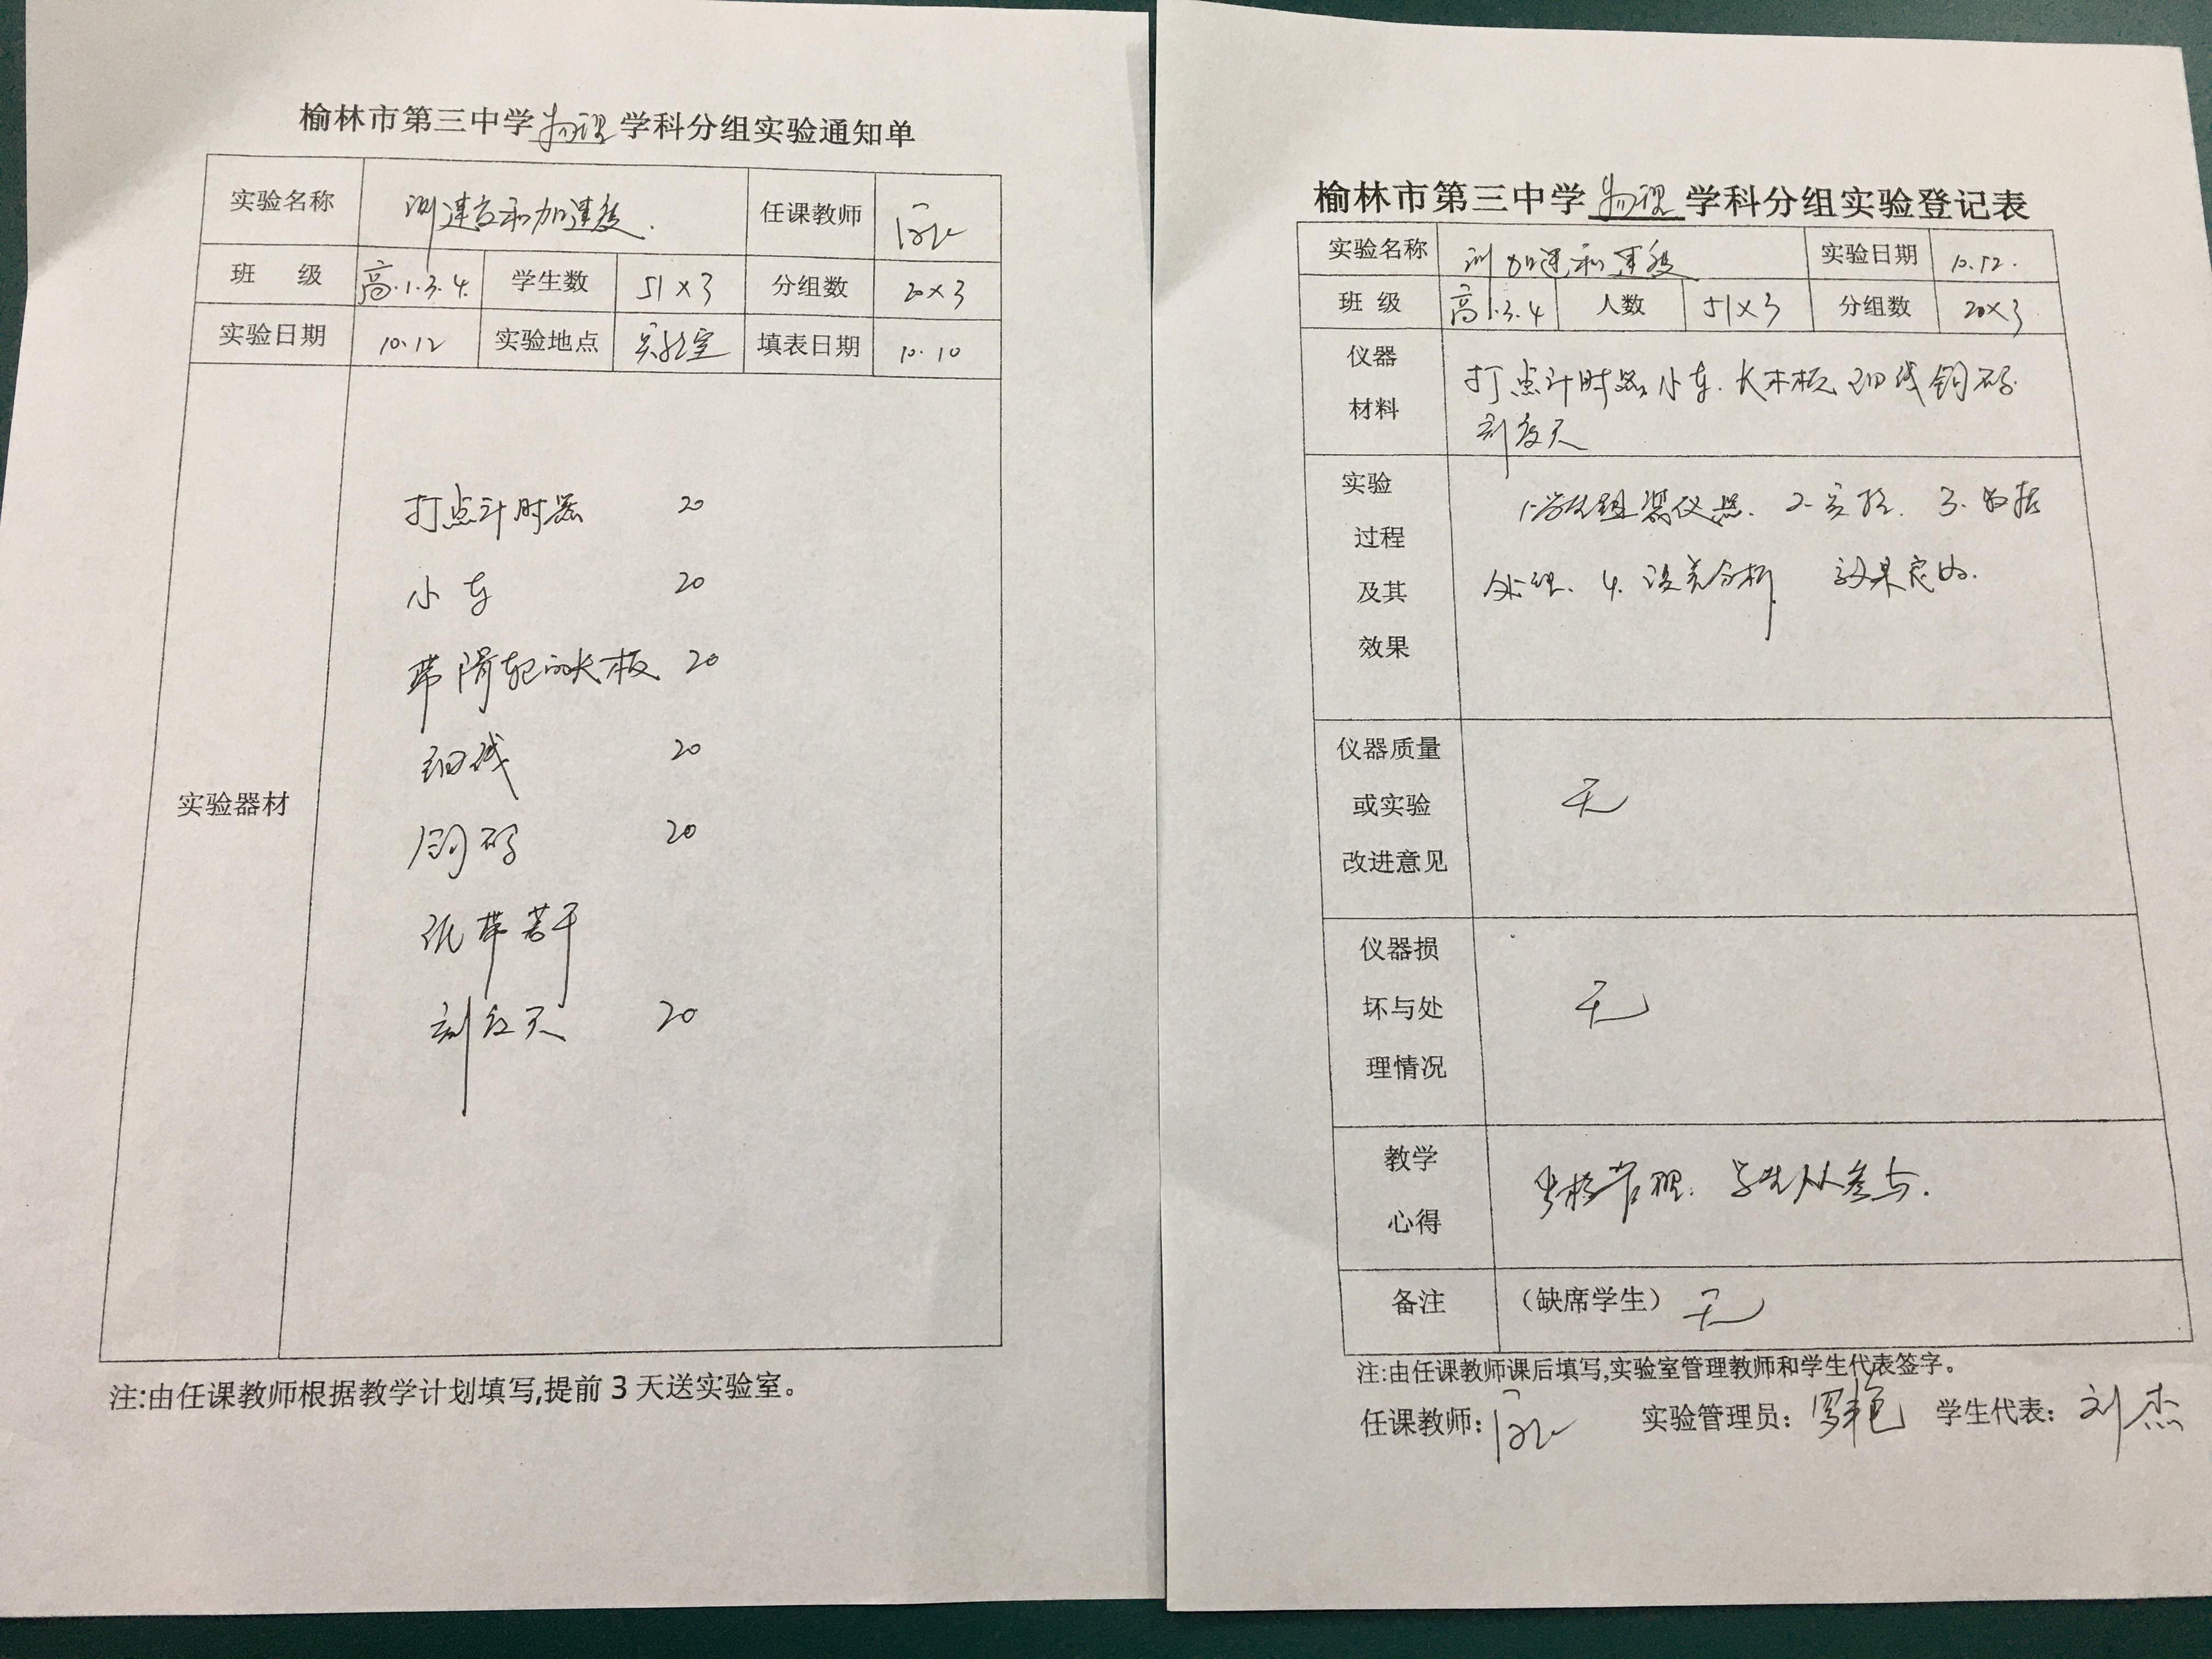 榆林市第三中学物理学科分组实验通知单
实验名称 测速度和加速度. 任课教师
班 级 高.1.3.4. 学生数 51×3 分组数 20×3
实验日期 10.12 实验地点 实验室 填表日期 10.10
实验器材
打点计时器 20
小车 20
带滑轮的长木板 20
细线 20
钩码 20
纸带若干
刻度尺 20
注:由任课教师根据教学计划填写,提前3天送实验室。
榆林市第三中学物理学科分组实验登记表
实验名称 测加速和速度 实验日期 10.12.
班 级 高1.3.4 人数 51×3 分组数 20×3
仪器
材料
打点计时器.小车.长木板.细线 钩码.
刻度尺
实验
过程
及其
效果
1.学生组装仪器. 2.实验. 3.数据
处理. 4.误差分析 效果良好.
仪器质量
或实验
改进意见
无
仪器损
坏与处
理情况
无
教学
心得
严格管理. 学生参与.
备注 (缺席学生) 无
注:由任课教师课后填写,实验室管理教师和学生代表签字。
任课教师: 实验管理员: 罗艳 学生代表: 刘杰